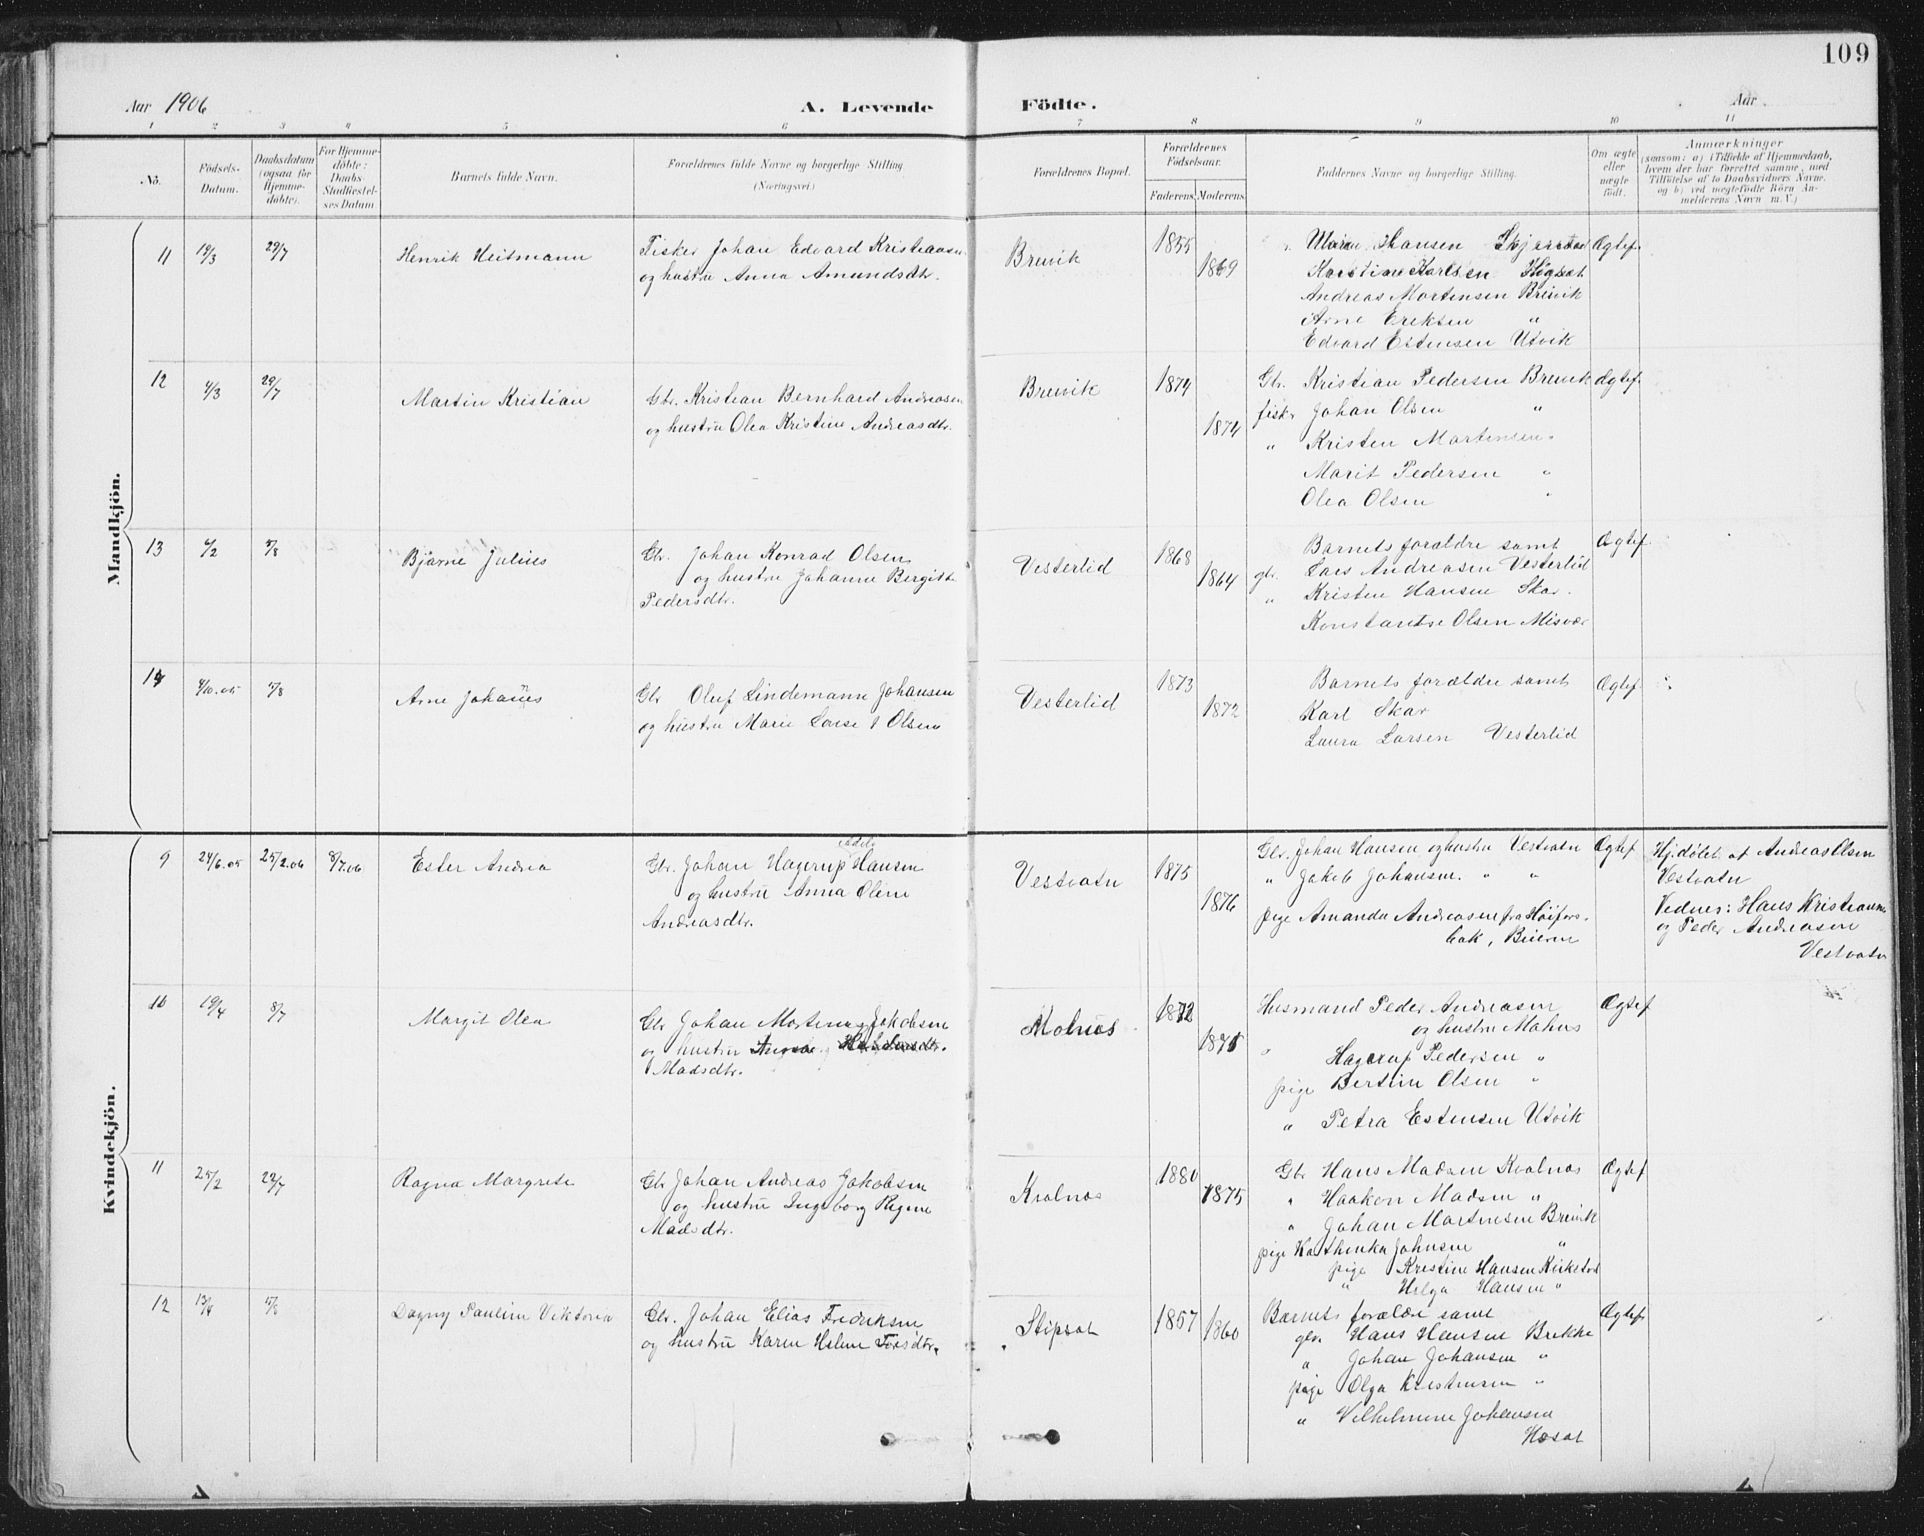 109
Aar 1906
A. Levende Födte.
Aar
1 2 3 4 5 6 7 8 9 10 11
No.
Födsels-
Datum.
Daabsdatum
(ogsaa for
Hjemme-
döbte).
For Hjemme-
döbte:
Daabs-
Stadfæstel-
ses Datum.
Barnets fulde Navn.
Forældrenes fulde Navne og borgerlige Stilling
(Næringsvei.)
Forældrenes Bopæl.
Forældrenes
Födselsaar.
Faderens. Moderens.
Faddernes Navne og borgerlige Stilling.
Om ægte
eller
uægte
födt.
Anmærkninger
(saasom: a) i Tilfælde af Hjemmedaab,
hvem der har forrettet samme, med
Tilföielse af to Daabsvidners Navne.
og b) ved uægtefödte Börn An-
melderens Navn m. V.)
Mandkjön.
11 19/3 29/7
Henrik Heitmann
Fisker Johan Edvard Kristiansen
og hustru Anna Amundsdtr.
Breivik
1855
1869
Hansen Skjerstad
Karlsen
Andreas Mortensen Breivik
Arne Eriksen "
Edvard Estensen Utvik
Ægtef.
12 4/3 29/7
Martin Kristian
Gbr. Kristian Bernhard Andreasen
og hustru Olea Kristine Andreasdtr.
Breivik
1874
1874
Gbr. Kristian Pedersen Breivik
fisker Johan Olsen "
" Kristen Mortensen "
Marit Pedersen "
Olea Olsen "
Ægtef.
13 6/2 5/8
Bjarne Julius
Gbr. Johan Konrad Olsen
og hustru Johanne Bergitte
Pedersdtr.
Vesterlid
1868
1864
Barnets forældre samt
gbr. Lars Andreasen Vesterlid
" Kristen Hansen Skar.
Konstantse Olsen Misvær
Ægtef.
14 4/10.05 5/8
Arne Johannes
Gbr Oluf Lindemann Johansen
og hustru Marie Olsen
Vesterlid
1873
1872
Barnets forældre samt
Karl Skar
Laura Larsen Vesterlid
Ægtef.
Kvindekjön.
9 24/6.05 25/2.06 8/7.06
Ester Andrea
Adele
Gbr. Johan Hagerup Hansen
og hustru Anna Oline
Andreasdtr.
Vestvatn
1875
1876
Gbr. Johan Hansen og hustru Vestvatn
" Jakob Johansen " "
pige Amanda Andreasen fra Høifors-
bak, Beieren
Ægtef
Hj.døbt af Andreas Olsen
Vestvatn
Vidnes: Hans Kristiansen
og Peder Andreasen
Vestvatn
10 19/4 8/7
Margit Olea
Gbr Johan Jakobsen
og hustru
Madsdtr.
1872
1875
Husmand Peder Andreasen
og hustru
" Hagerup Pedersen "
pige Olsen "
" Petra Estensen Utvik
Ægtef
11 25/2 29/7
Ragna Margrete
Gbr Johan Andreas Jakobsen
og hustru Ingeborg Regine
Madsdtr.
Kvalnæs
1880
1875
Gbr Hans Madsen Kvalnæs
" Haakon Madsen "
" Johan Martinsen Breivik
pige Kathinka Johnsen "
pige Kristine Hansen
" Helga Hansen "
Ægtef
12
Dagny Pauline Viktoria
Gbr. Johan Elias Fredriksen
og hustru Karen Helene
1857 1860
Barnets forældre samt
gbr. Hans Hansen Brekke
" Johan Johansen "
pige Olga Kristensen "
" Vilhelmine Johansen
Ægtef